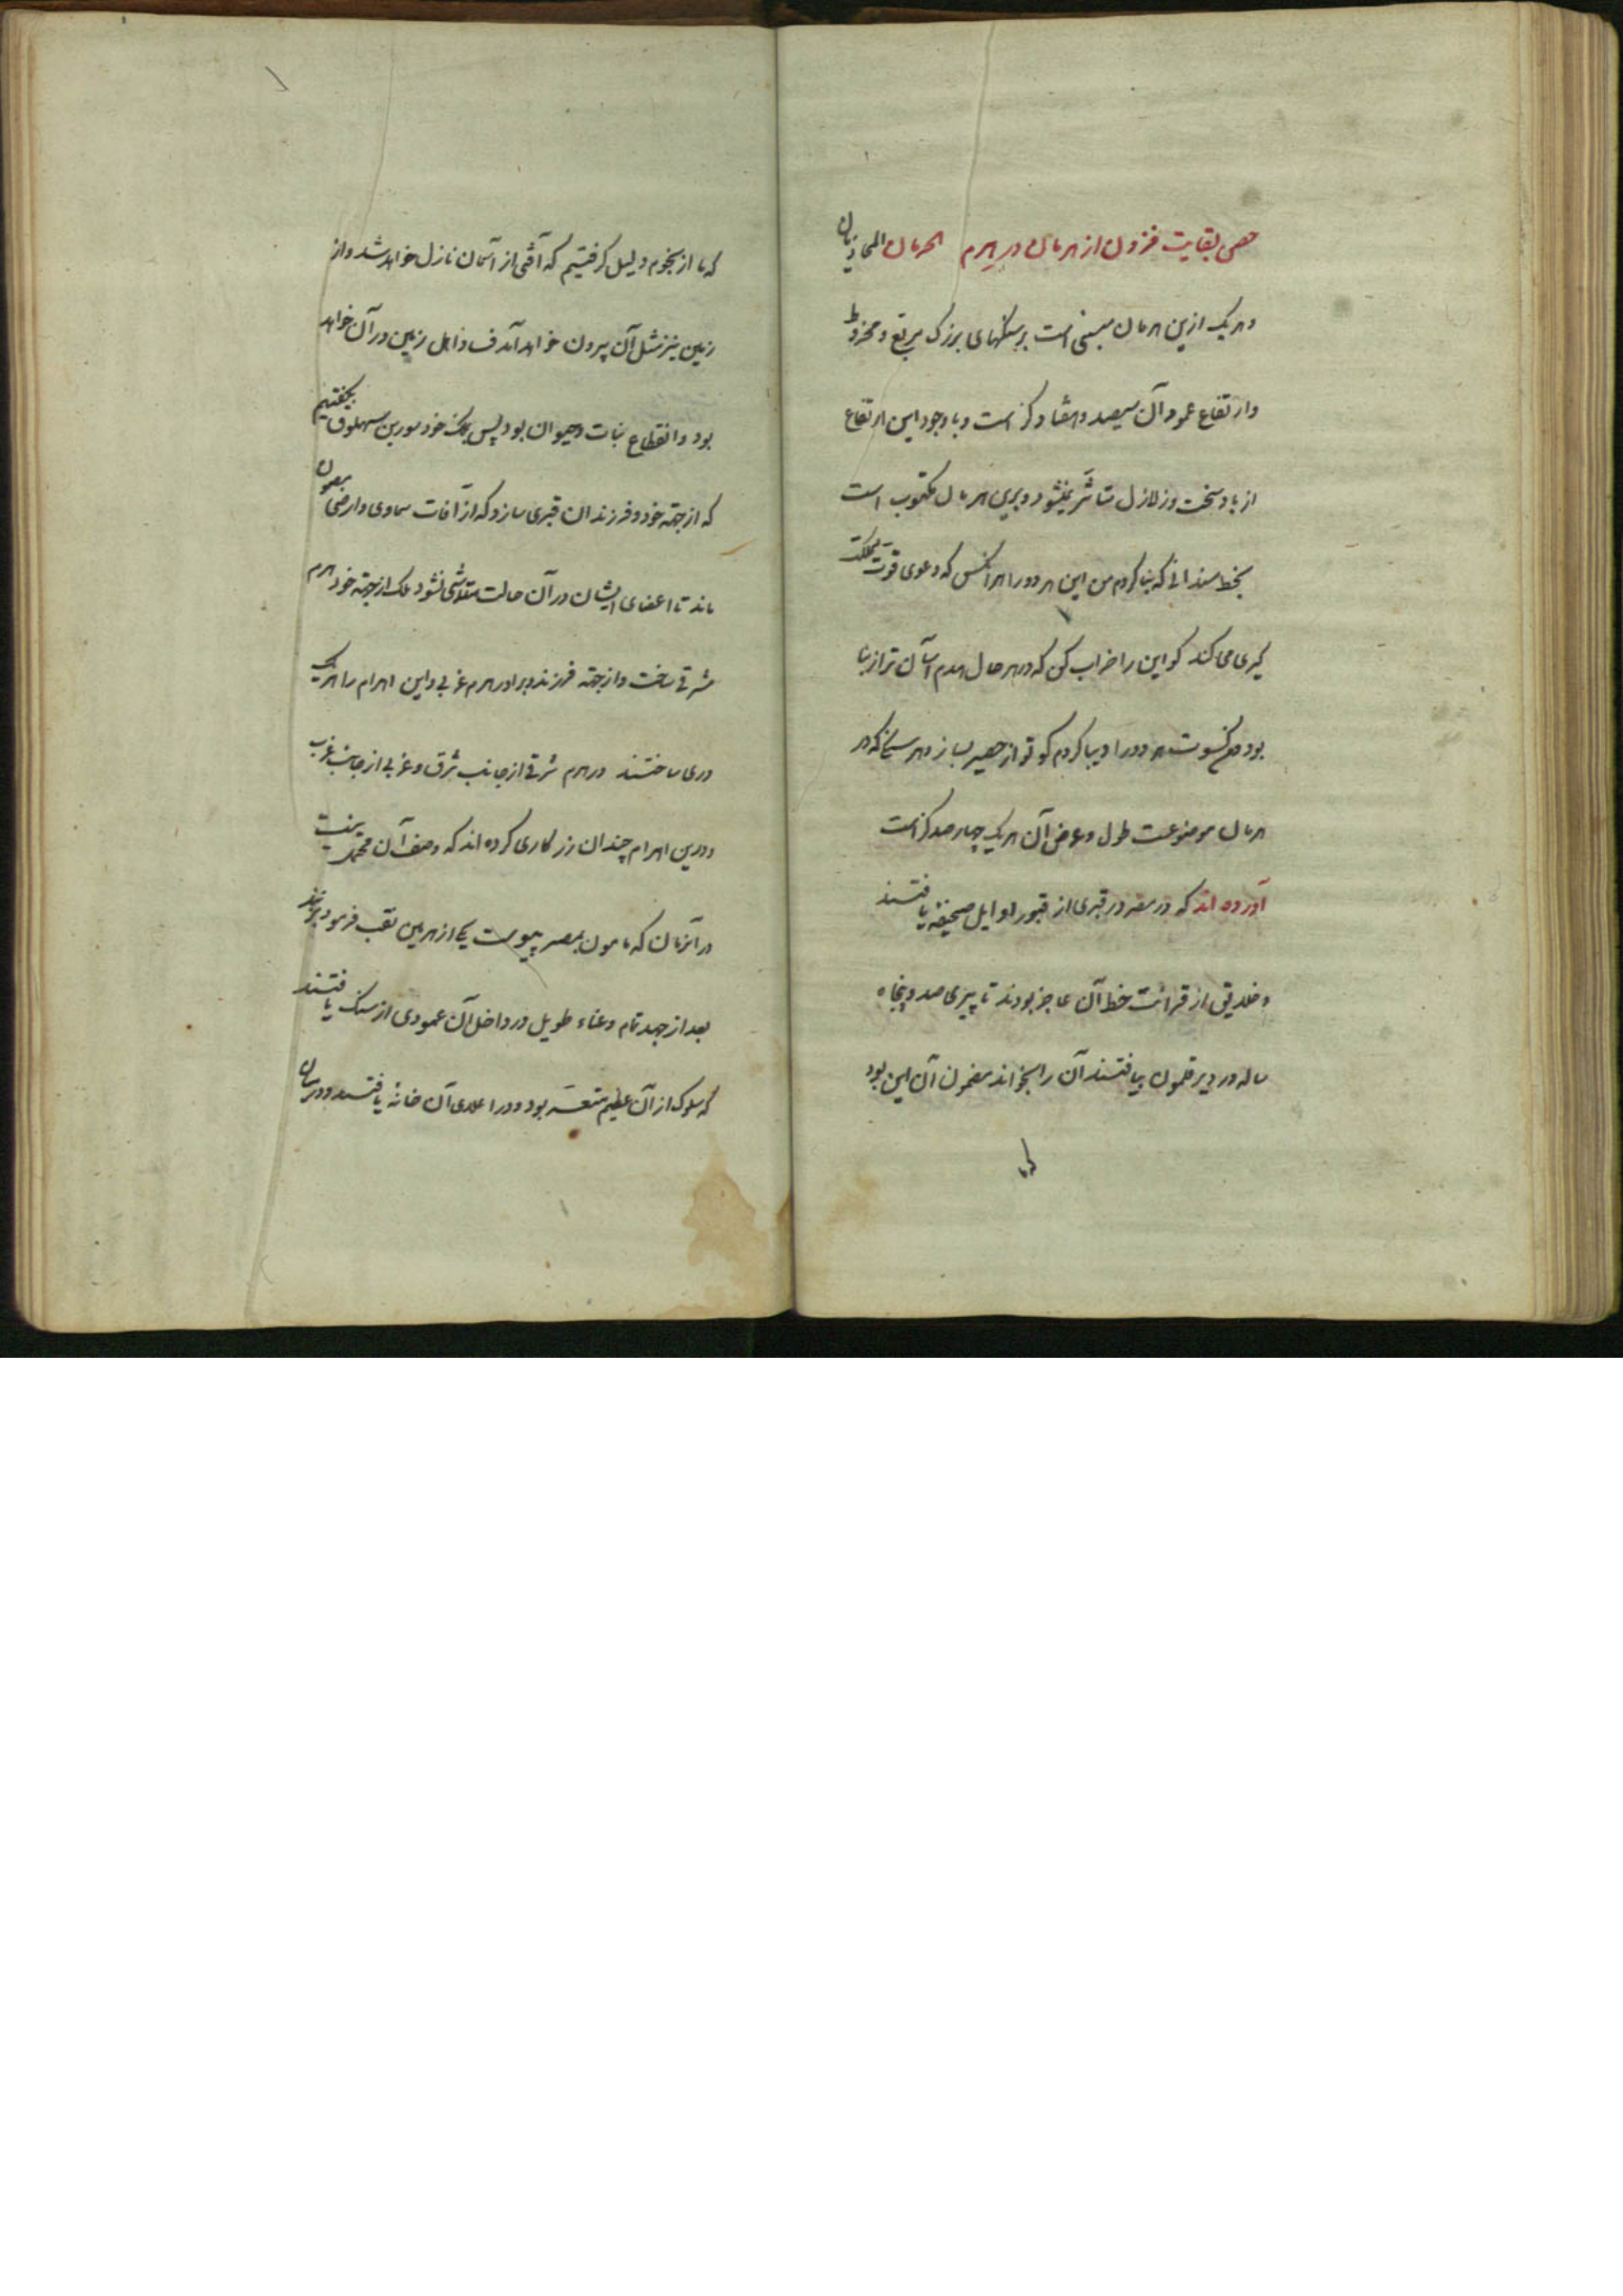 حصن بقایت فزون از هرمان در هرم الهرمان المحاذیان
و هر یک ازین هرمان مبنی است بر سنگهای بزرگ مربع و مخروط
و ارتفاع عمود آن سیصد و هفتاد گز است و با وجود این ارتفاع
از باد سخت و زلازل متاثر نمیشود و برین هرمان مکتوب است
بخط مسند انی که بنا کردم من این هر دو را هر آنکس که دعوی قوت مملکت
گیری می کند گو این را خراب کن که در هر حال هدم آسان تر از بنا
بود من کسوت هر دو را دیبا کردم گو تو از حصیر بساز و هر سنگی که در
هرمان موضوعست طول و عرض آن هر یک چهار صد گز است
آورده اند که در مصر در قبری از قبور اوایل صحیفه یافتند
و خلایق از قرائت خط آن عاجز بودند تا پیری صد و پنجاه
ساله در دیر قلمون بیافتند آن را بخواند مضمون آن این بود
که ما
که ما از نجوم دلیل گرفتیم که آفتی از آسمان نازل خواهد شد و از
زمین نیز مثل آن بیرون خواهد آمد فساد اهل زمین در آن خواهد
بود و انقطاع نبات و حیوان بود پس ملک خود سورین سهلوق بگفتیم
که از جهة خود و فرزندان قبری سازد که از آفات سماوی و ارضی مصون
ماند تا اعضای ایشان در آن حالت متلاشی نشود ملک از جهة خود هرم
شرقی ساخت و از جهة فرزند و برادر هرم غربی و این اهرام را هر یک
دری ساختند در هرم شرقی از جانب شرق و غربی از جانب غرب
و درین اهرام چندان زر کاری کرده اند که وصف آن محتمل نیست
در آنزمان که مامون بمصر پیوست یکی از هرمین نقب فرمود بزدند
بعد از جهد تمام و عناء طویل در داخل آن عمودی از سنگ یافتند
که سلوک از آن عظیم متعسر بود و در اعلای آن خانه یافتند و در میان